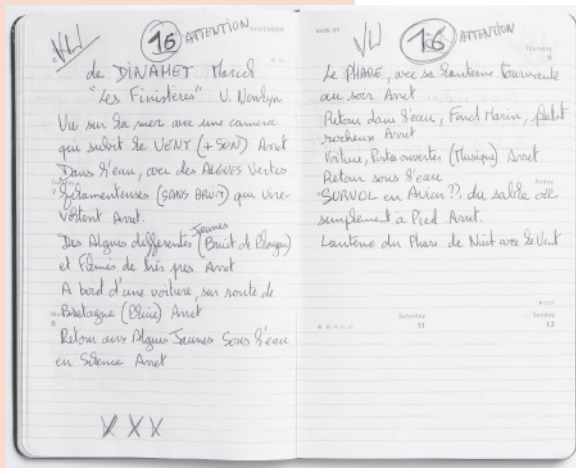 Vu 16 ATTENTION NOVEMBER
de DINAHET Marcel
"Les Finistères" V. Newlyn
Vu sur la mer avec une camera
qui subit le VENT (+ SON) Arret
Dans l'eau, avec des ALGUES Vertes
filamenteuses (SANS BRUIT) qui vire-
voltent Arret.
Jaunes
Des Algues differentes (Bruit de Plongeur)
et Filmés de très pres Arret
A bord d'une voiture, sur route de
Bretagne (Pluie) Arret
Retour aux Algues Jaunes Sous l'eau
en Silence Arret
X X X
Vu 16 ATTENTION
Thursday
9
Le PHARE, avec sa lanterne tournante
au soir Arret
Retour dans l'eau, Fond Marin, plutot
rocheux Arret
Voiture, Portes ouvertes (Musique) Arret
Retour sous l'eau
Friday
SURVOL en Avion ??. du sable ou
simplement à Pied Arret.
Lanterne du Phare de Nuit avec le Vent
Saturday
11
Sunday
12